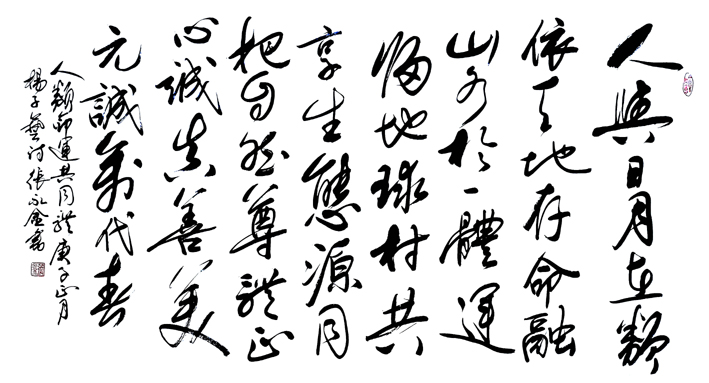 人與日月在類
依天地存命融
山水於一體運
歸地球村共
享生態源同
把自然尊體正
心誠真善美
元誠萬代春
人類命運共同體庚子正月
楊子藝河張永金書